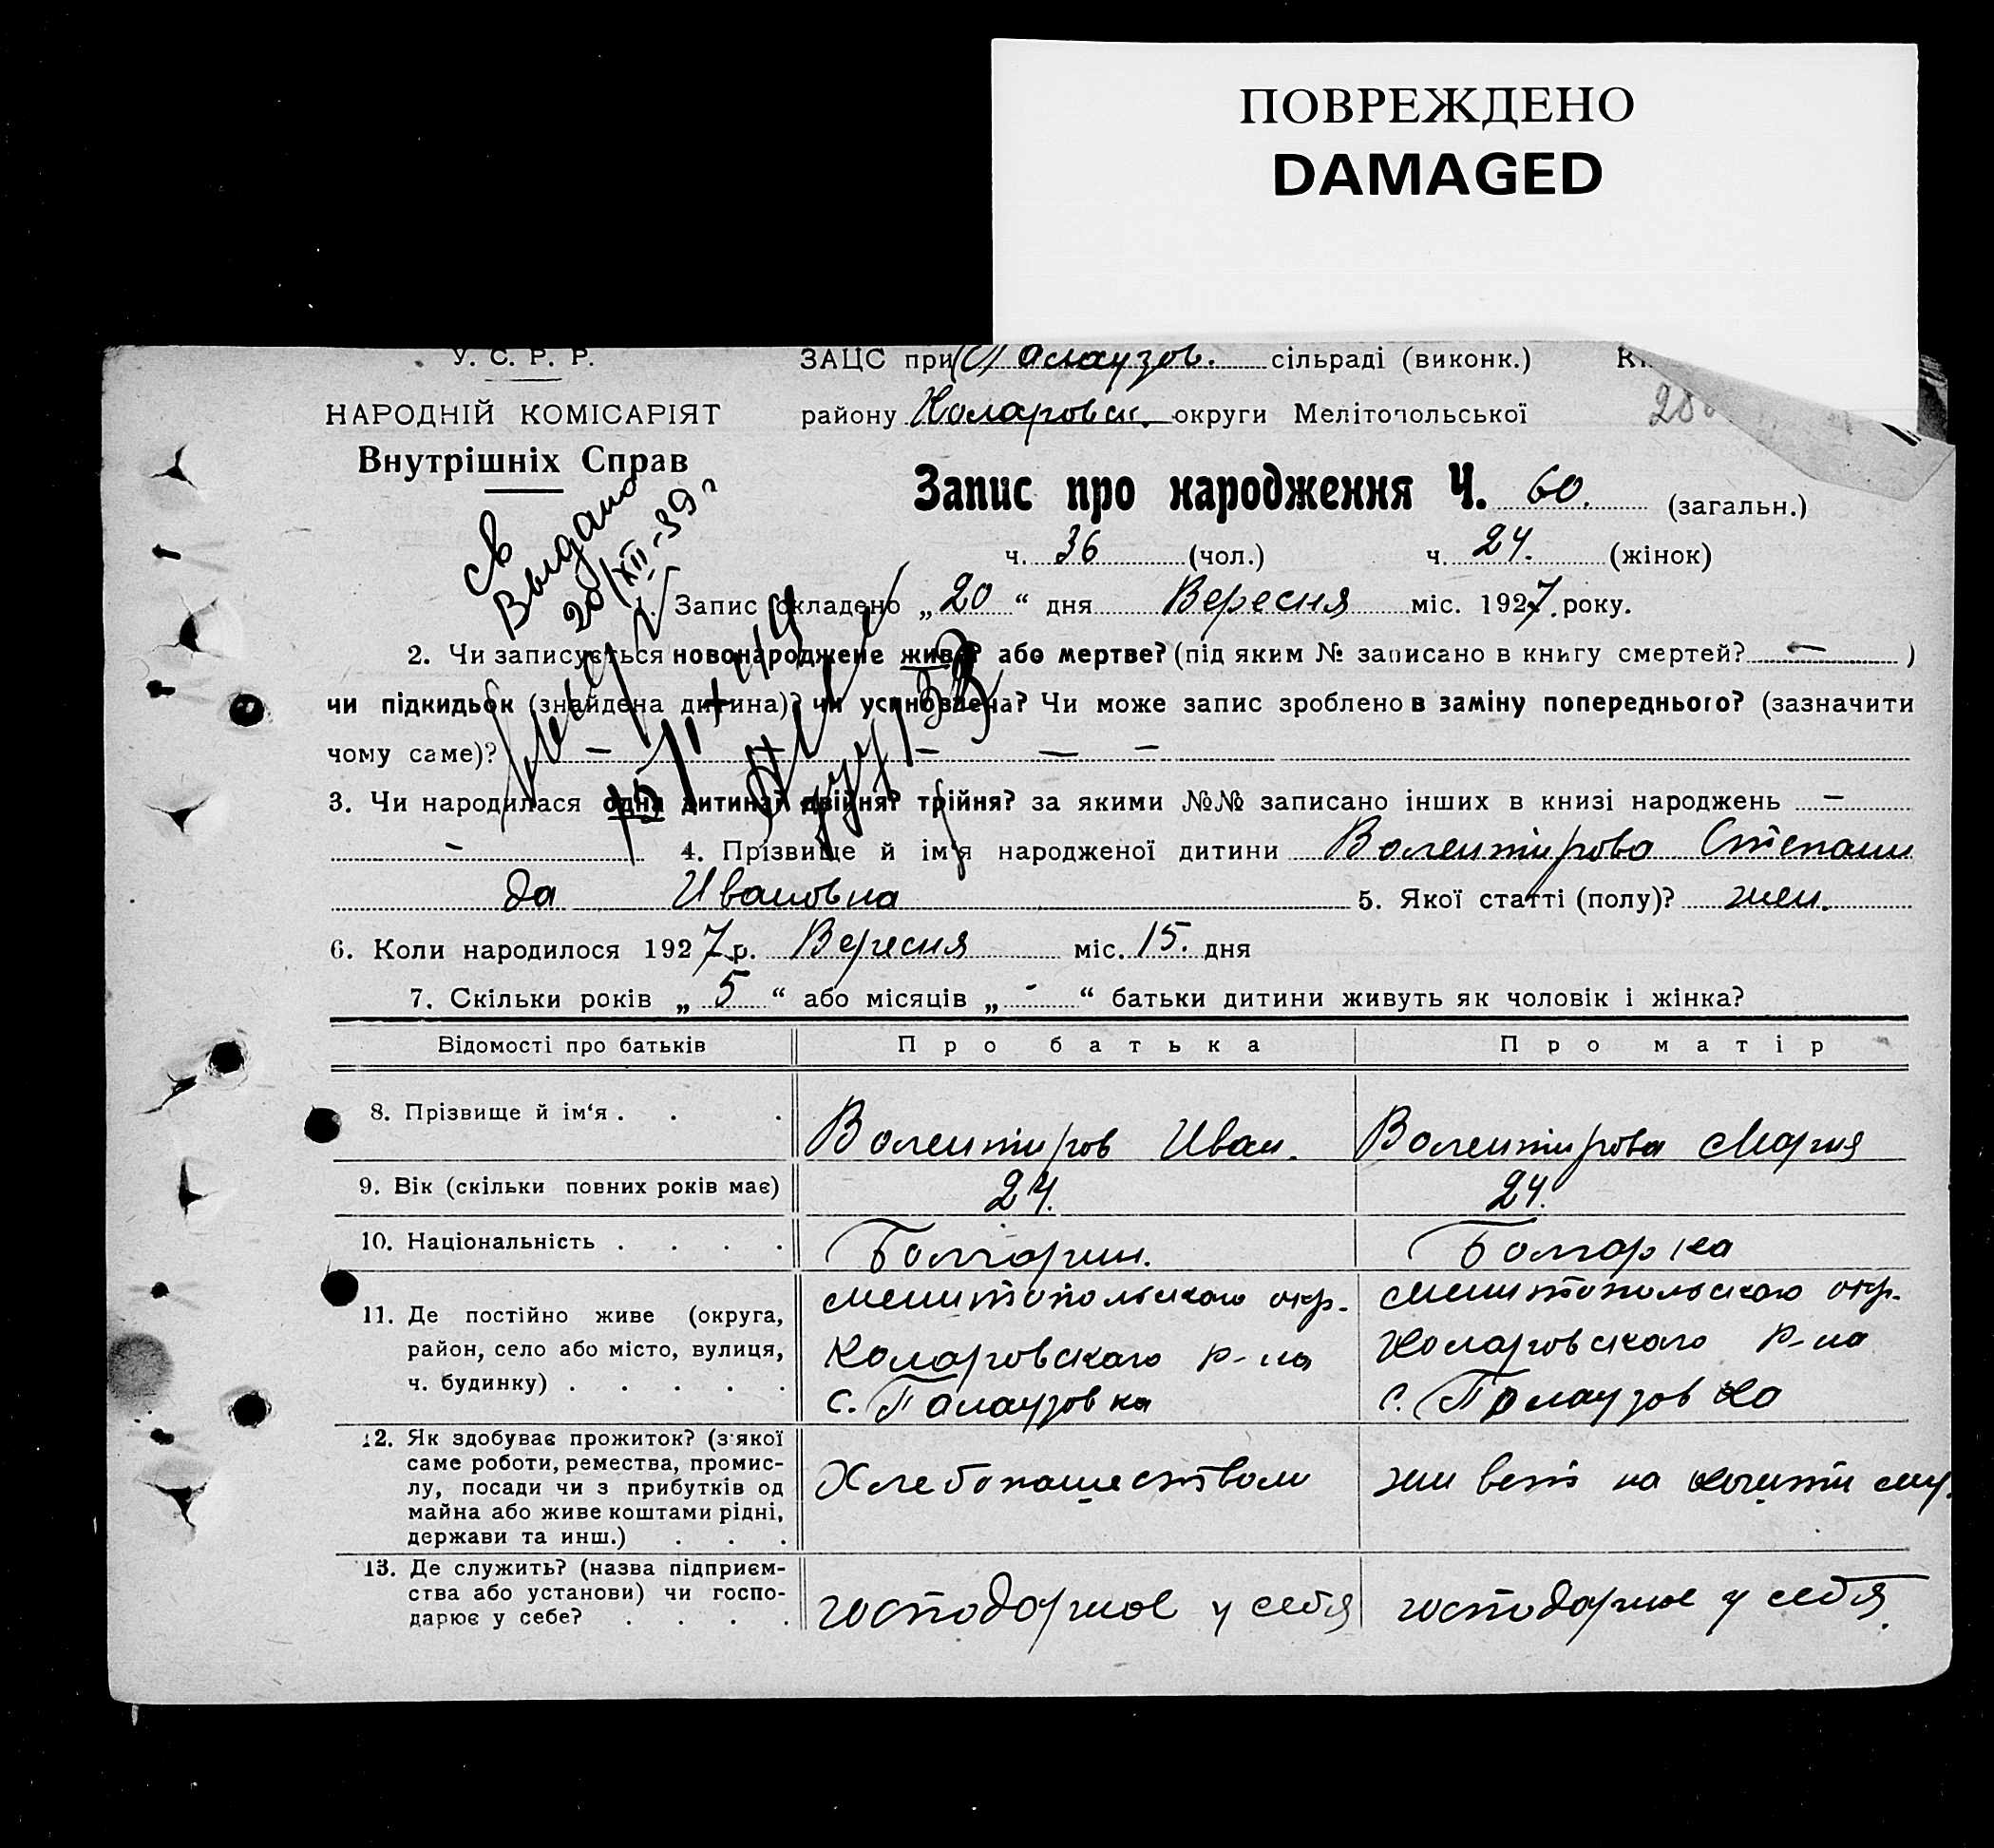 ПОВРЕЖДЕНО
DAMAGED
У. С. Р. Р.
ЗАЦС при Палаузов. сільраді (виконк.)
НАРОДНІЙ КОМІСАРІЯТ
району Коларовск. округи Мелітопольської
Внутрішніх Справ
Запис про народження Ч. 60. (загальн.)
ч. 36 (чол.) ч. 24. (жінок)
св
Выдано
20/XII-39г
1. Запис складено „20“ дня Вересня міс. 1927. року.
2. Чи записується новонароджене живе? або мертве? (під яким № записано в книгу смертей? — )
чи підкидьок (знайдена дитина)? чи усиновлена? Чи може запис зроблено в заміну попереднього? (зазначити
чому саме)? — — — —
3. Чи народилася одна дитина? двійня? трійня? за якими №№ записано інших в книзі народжень —
- 4. Прізвище й ім'я народженої дитини Волентирова Степани
да Ивановна 5. Якої статті (полу)? жен.
6. Коли народилося 1927 р. Вересня міс. 15. дня
7. Скільки років „5“ або місяців „-“ батьки дитини живуть як чоловік і жінка?
Відомості про батьків Про батька Про матір
8. Прізвище й ім'я . . . Волентиров Иван. Волентирова Мария
9. Вік (скільки повних років має) 24. 24.
10. Національність . . . . Болгарин. Болгарка
11. Де постійно живе (округа,
район, село або місто, вулиця,
ч. будинку) . . . . .
Мелитопольского окр.
Коларовского р-на
с. Палаузовка
Мелитопольского окр.
Коларовского р-на
с. Палаузовка
12. Як здобуває прожиток? (з якої
саме роботи, ремества, промис-
лу, посади чи з прибутків од
майна або живе коштами рідні,
держави та инш.) . . .
Хлебопашеством
живеть на кошти му.
13. Де служить? (назва підприєм-
ства або установи) чи госпо-
дарює у себе? . . . .
господарюе у себя
господарюе у себя.